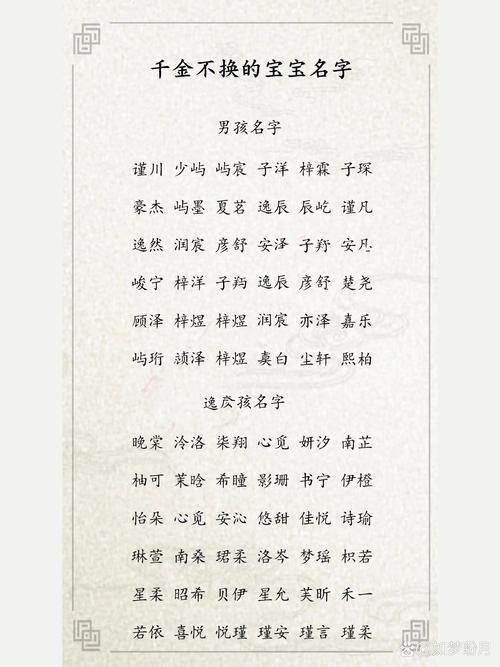 千金不换的宝宝名字
男孩名字
谨川 少屿 屿宸 子洋 梓霖 子琛
豪杰 屿墨 夏茗 逸辰 辰屹 谨凡
逸然 润宸 彦舒 安泽 子羿 安凡
峻宁 梓洋 子羿 逸辰 彦舒 楚尧
顾泽 梓煜 梓煜 润宸 亦泽 嘉乐
屿珩 颉泽 梓煜 奕白 尘轩 熙柏
逸孩名字
晚棠 泠洛 柒翔 心觅 妍汐 南芷
柚可 茉晗 希瞳 影珊 书宁 伊橙
怡朵 心觅 安沁 悠甜 佳悦 诗瑜
琳萱 南桑 珺柔 洛岑 梦瑶 枳若
星柔 昭希 贝伊 星允 芙昕 禾一
若依 喜悦 悦瑾 瑾安 瑾言 瑾柔
@如梦盼月